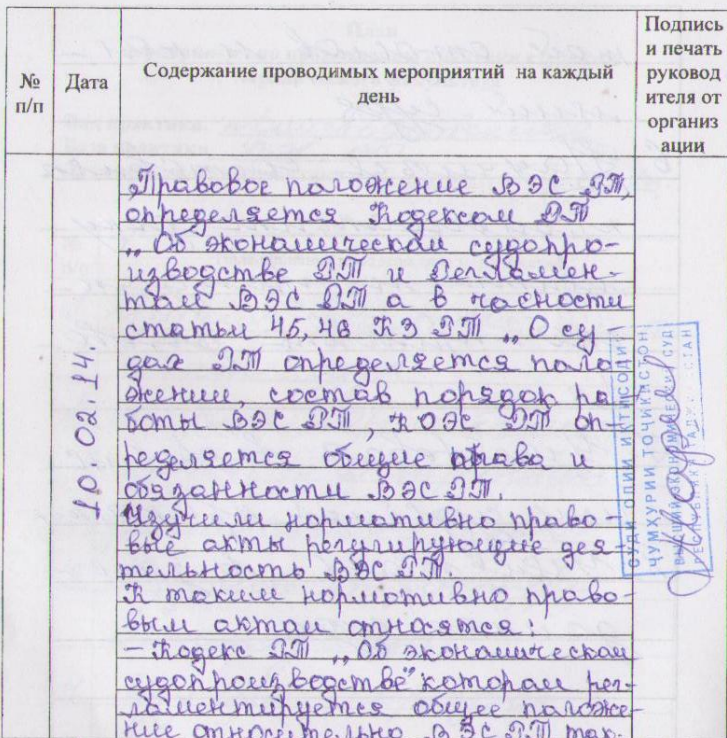 № п/п
Дата
Содержание проводимых мероприятий на каждый
день
Подпись
и печать
руковод
ителя от
организ
ации
10.02.14.
„Правовое положение ВЭС РТ,
определяется Кодексом РТ
„Об экономическом судопро-
изводстве РТ и Регламен-
том ВЭС РТ а в часности
статьи 45, 46 КЗ РТ „О су-
дах РТ определяется поло-
жении, состав порядок ра-
боты ВЭС РТ, КОЭС РТ оп-
ределяется общие права и
обязанности ВЭС РТ.
Изучили нормативно право-
вые акты регулирующие дея-
тельность ВЭС РТ.
К таким нормативно право-
вым актам относятся:
– Кодекс РТ „Об экономическом
судопроизводстве" котором рег-
ламентируется общее положе-
ние относительно ВЭС РТ так-
СУДИ ОЛИИ ИҚТИСОДИИ
ҶУМҲУРИИ ТОҶИКИСТОН
ВЫСШИЙ ЭКОНОМИЧЕСКИЙ СУД
РЕСПУБЛИКИ ТАДЖИКИСТАН